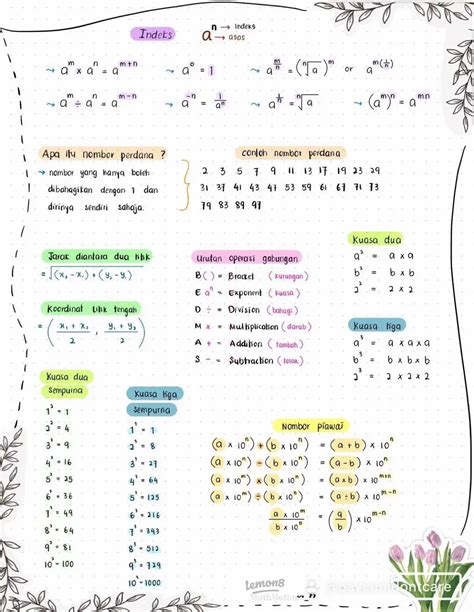 Indeks aⁿ → indeks
→ asas
→ aᵐ × aⁿ = aᵐ⁺ⁿ → a⁰ = 1 → a^(m/n) = (ⁿ√a)ᵐ or a^m(1/n)
→ aᵐ ÷ aⁿ = aᵐ⁻ⁿ → a⁻ⁿ = 1/aⁿ → a^(1/n) = ⁿ√a → (aᵐ)ⁿ = aᵐⁿ
Apa itu nombor perdana ?
→ nombor yang hanya boleh
dibahagikan dengan 1 dan
dirinya sendiri sahaja.
contoh nombor perdana
2 3 5 7 9 11 13 17 19 23 29
31 37 41 43 47 53 59 61 67 71 73
79 83 89 97
Jarak diantara dua titik
= √(x₂ - x₁) + (y₂ - y₁)
Koordinat titik tengah
= ( x₁ + x₂ / 2 , y₁ + y₂ / 2 )
Urutan operasi gabungan
B ( ) = Bracket (kurungan)
E aⁿ = Exponent (kuasa)
D ÷ = Division (bahagi)
M × = Multiplication (darab)
A + = Addition (tambah)
S - = Subtraction (tolak)
Kuasa dua
a² = a × a
b² = b × b
2² = 2 × 2
Kuasa tiga
a³ = a × a × a
b³ = b × b × b
2³ = 2 × 2 × 2
Kuasa dua
sempurna
1² = 1
2² = 4
3² = 9
4² = 16
5² = 25
6² = 36
7² = 49
8² = 64
9² = 81
10² = 100
Kuasa tiga
sempurna
1³ = 1
2³ = 8
3³ = 27
4³ = 64
5³ = 125
6³ = 216
7³ = 343
8³ = 512
9³ = 729
10³ = 1000
Nombor piawai
(a × 10ⁿ) + (b × 10ⁿ) = (a + b) × 10ⁿ
(a × 10ⁿ) - (b × 10ⁿ) = (a - b) × 10ⁿ
(a × 10ᵐ) × (b × 10ⁿ) = (a × b) × 10ᵐ⁺ⁿ
(a × 10ᵐ) ÷ (b × 10ⁿ) = (a ÷ b) × 10ᵐ⁻ⁿ
a × 10ᵐ / b × 10ⁿ = (a/b) × 10ᵐ⁻ⁿ
Lemon8